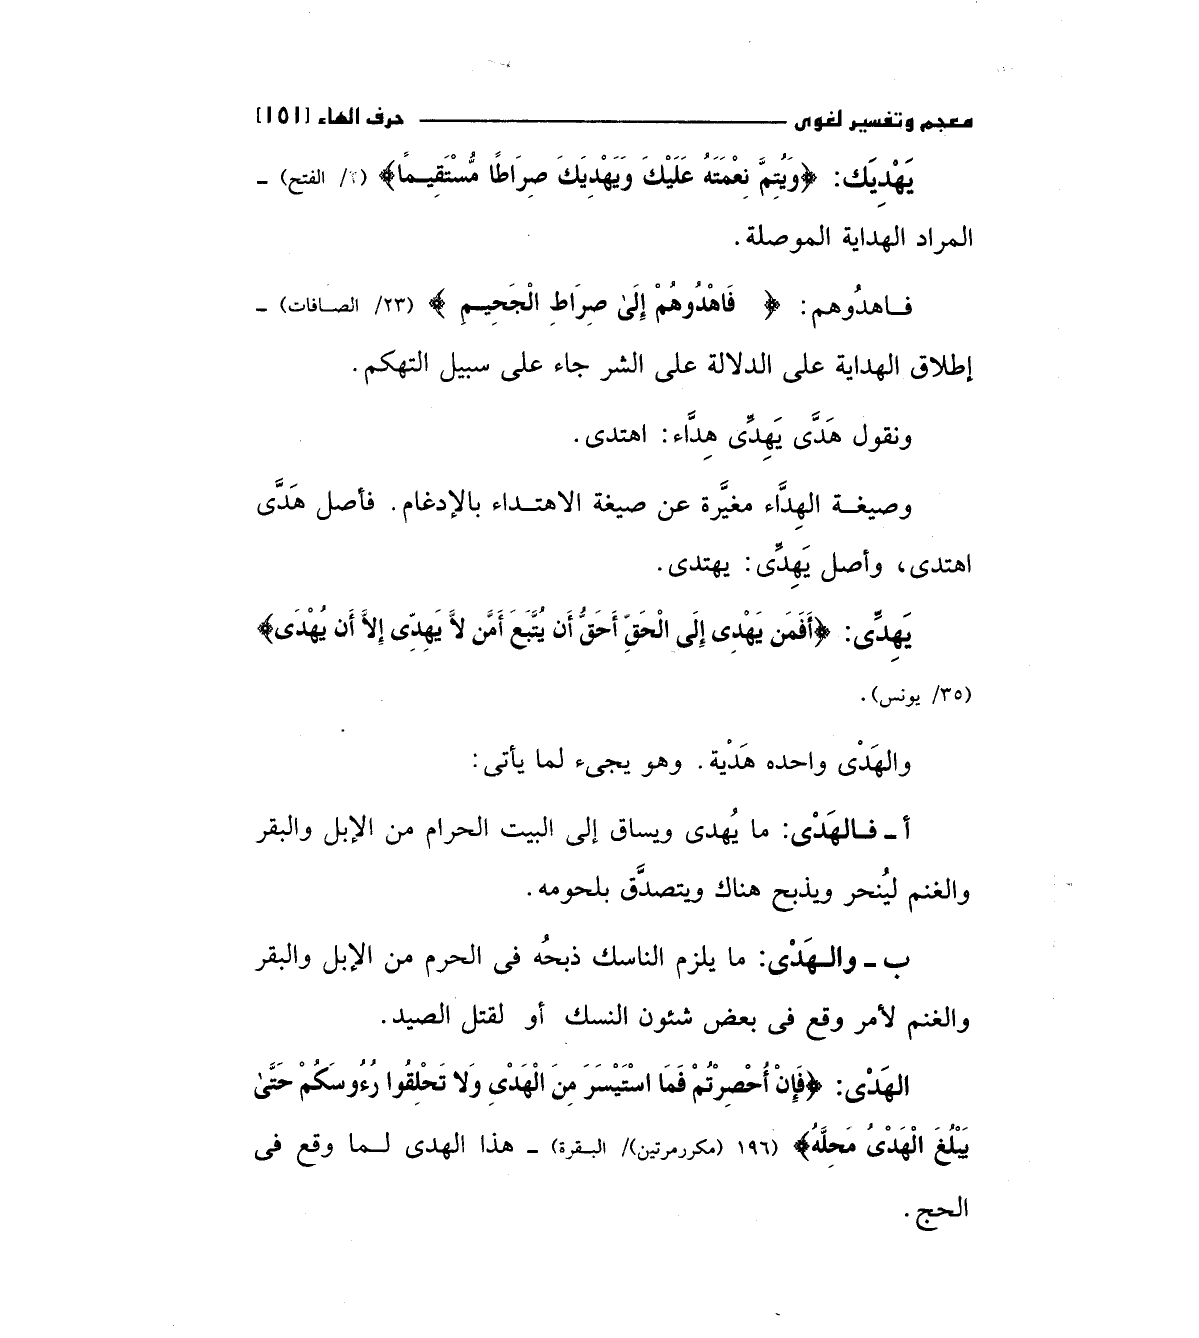 معجم وتفسير لغوى حرف الهاء [١٥١]
يَهْدِيَك: ﴿وَيُتِمَّ نِعْمَتَهُ عَلَيْكَ وَيَهْدِيَكَ صِرَاطًا مُّسْتَقِيمًا﴾ (٢/ الفتح) ـ
المراد الهداية الموصلة.
فاهدُوهم: ﴿ فَاهْدُوهُمْ إِلَىٰ صِرَاطِ الْجَحِيمِ ﴾ (٢٣/ الصافات) ـ
إطلاق الهداية على الدلالة على الشر جاء على سبيل التهكم.
ونقول هَدَّى يَهِدِّى هِدَّاء: اهتدى.
وصيغة الهِدَّاء مغيَّرة عن صيغة الاهتداء بالإدغام. فأصل هَدَّى
اهتدى، وأصل يَهِدِّى: يهتدى.
يَهِدِّى: ﴿أَفَمَن يَهْدِى إِلَى الْحَقِّ أَحَقُّ أَن يُتَّبَعَ أَمَّن لاَّ يَهِدِّى إِلاَّ أَن يُهْدَى﴾
(٣٥/ يونس).
والهَدْى واحده هَدْية. وهو يجىء لما يأتى:
أ ـ فالهَدْى: ما يُهدى ويساق إلى البيت الحرام من الإبل والبقر
والغنم ليُنحر ويذبح هناك ويتصدَّق بلحومه.
ب ـ والهَدْى: ما يلزم الناسك ذبحُه فى الحرم من الإبل والبقر
والغنم لأمر وقع فى بعض شئون النسك أو لقتل الصيد.
الهَدْى: ﴿فَإِنْ أُحْصِرْتُمْ فَمَا اسْتَيْسَرَ مِنَ الْهَدْىِ وَلا تَحْلِقُوا رُءُوسَكُمْ حَتَّىٰ
يَبْلُغَ الْهَدْىُ مَحِلَّهُ﴾ (١٩٦ (مكررمرتين)/ البقرة) ـ هذا الهدى لما وقع فى
الحج.